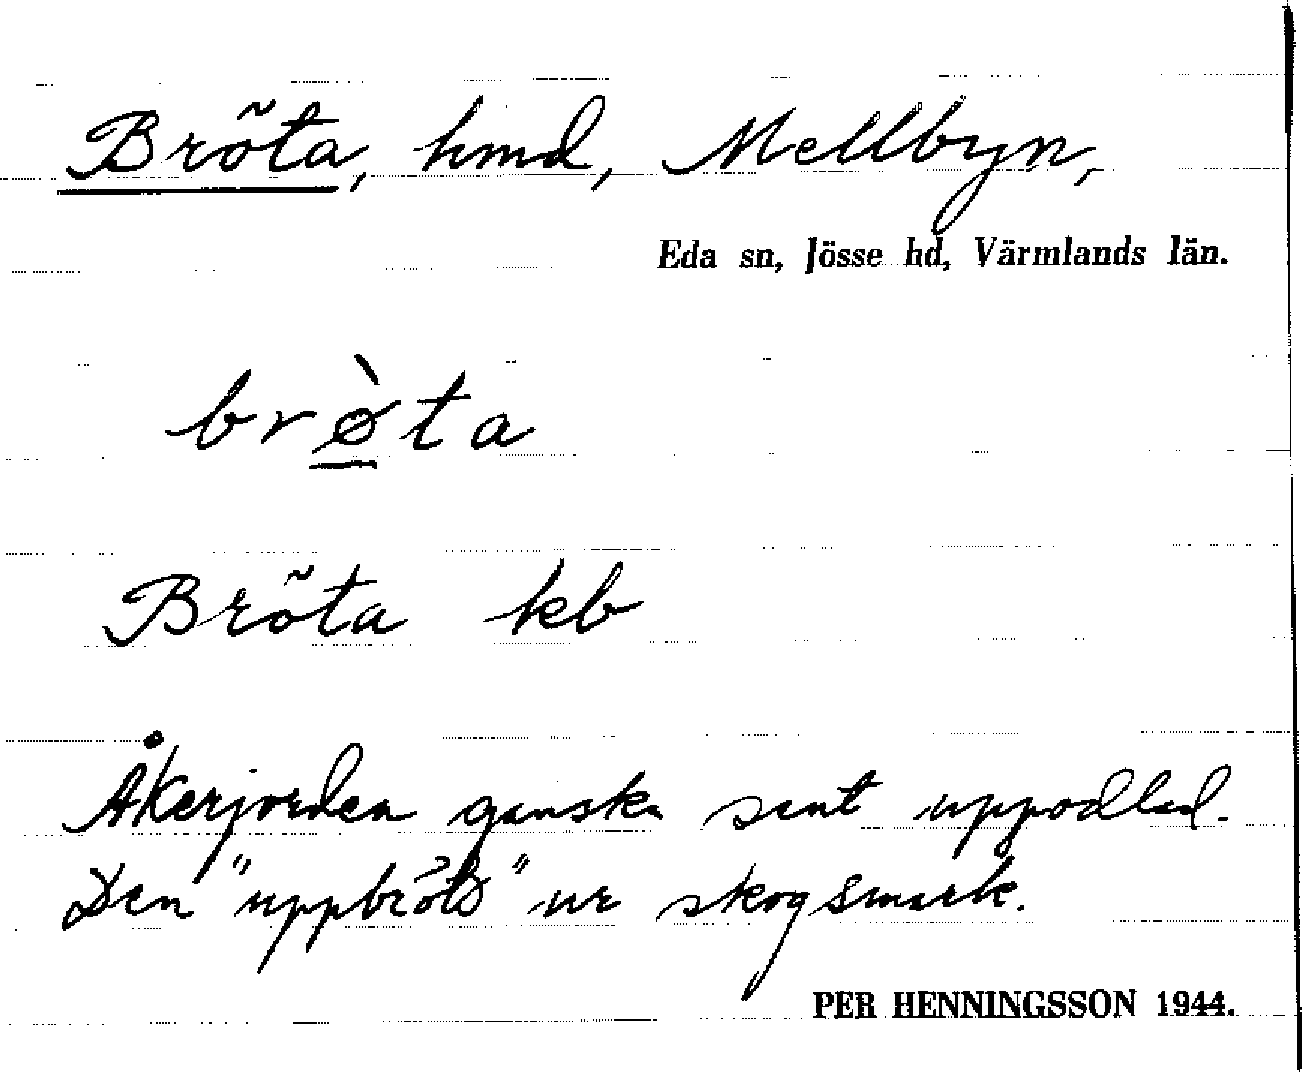 Bröta, hmd, Mellbyn,
Eda sn, Jösse hd, Värmlands län.
brø̀ta
Bröta kb
Åkerjorden ganska sent uppodlad.
Den "uppbröts" ur skogsmark.
PER HENNINGSSON 1944.